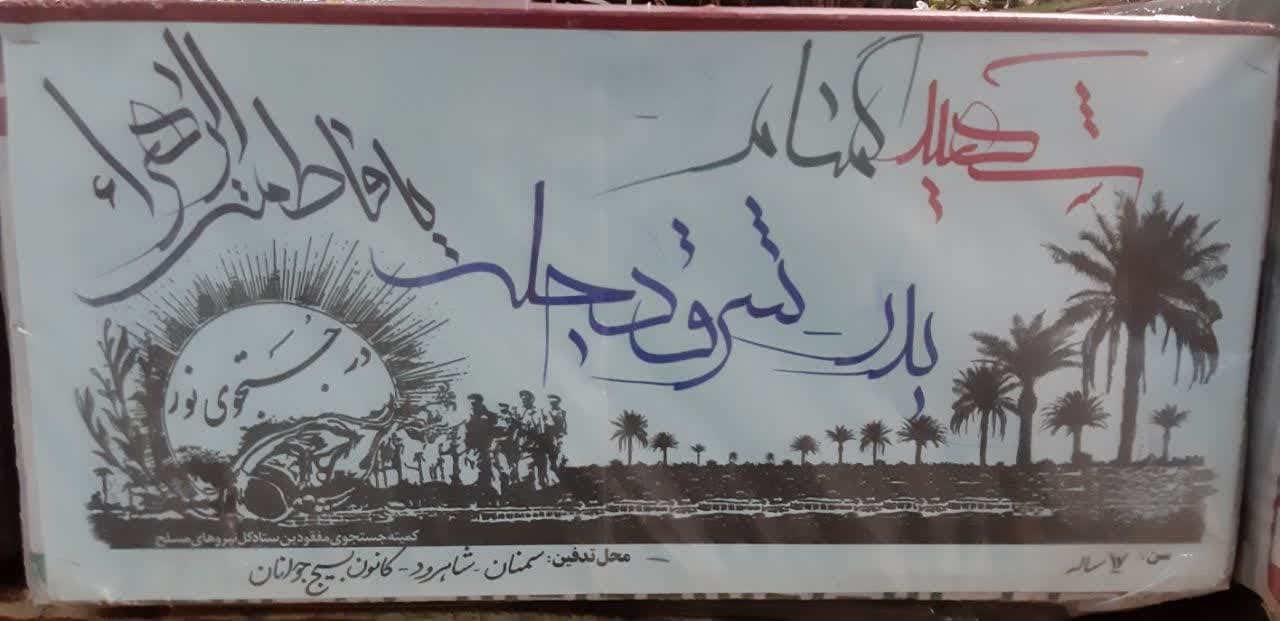 شهید گمنام
یا فاطمة الزهراء
بدر - شرق دجله
در جستجوی نور
کمیته جستجوی مفقودین ستاد کل نیروهای مسلح
سن: ۱۷ ساله
محل تدفین: سمنان - شاهرود - کانون بسیج جوانان